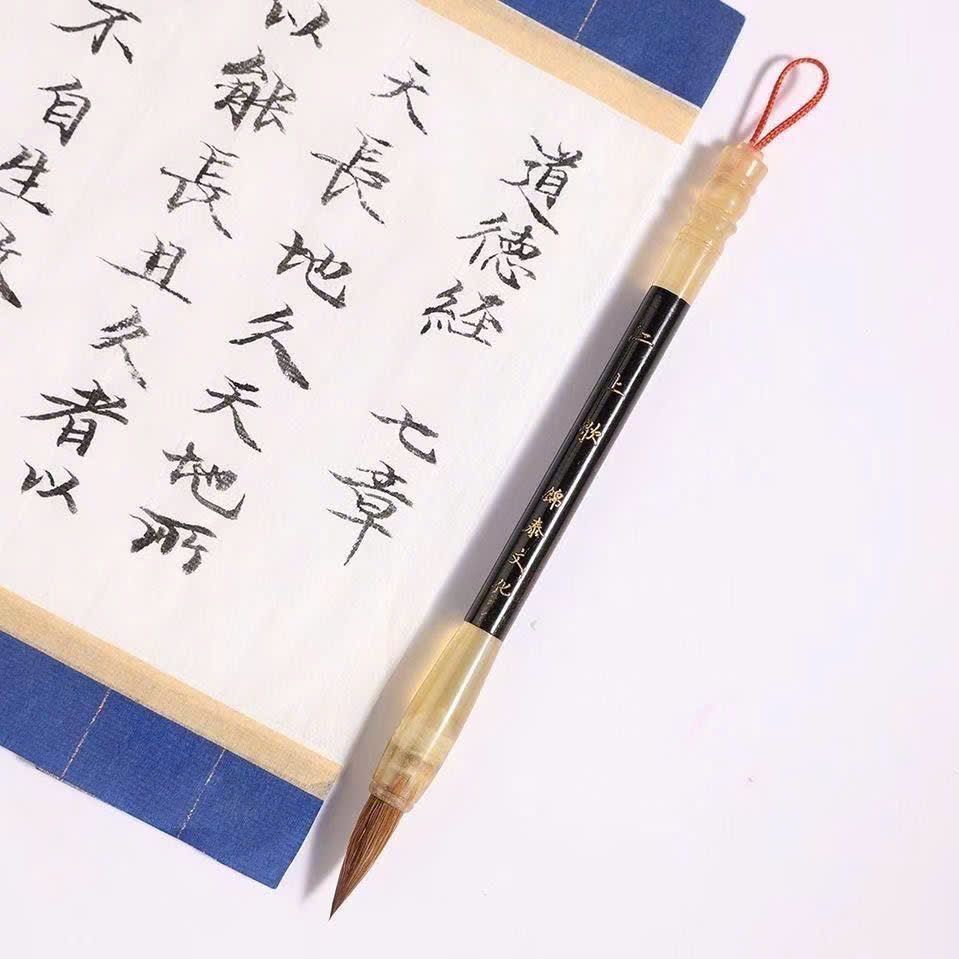 道德経 七章
天長地久天地所
以能長且久者以
不自生
上歌 錦泰文化